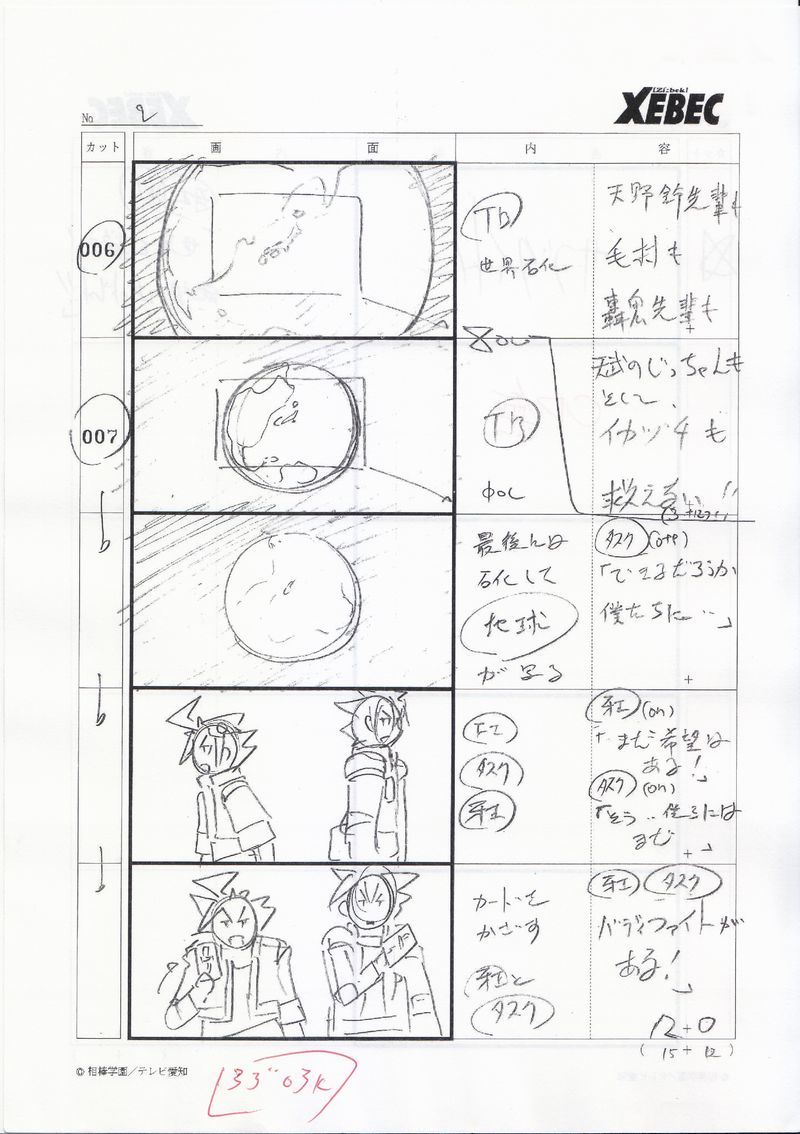 No. 2
[Zi:bek]
XEBEC
カット 画 面 内 容
006
TB
世界石化
天野鈴先輩も
毛村も
轟鬼先輩も
+
007
8OL
TB
中OL
武のじっちゃんも
そして、
イカヅチも
救える
最後には
石化して
地球
が
タスク (off)
「できるだろうか
僕たちに…」
+
牙王
タスク
牙王
牙王 (on)
「まだ希望は
ある!」
タスク (on)
「そう‥僕らには
まだ
」
+
カードを
かざす
牙王と
タスク
牙王 タスク
バディファイトが
ある!」
12+0
(15+12)
© 相棒学園/テレビ愛知
33"03K